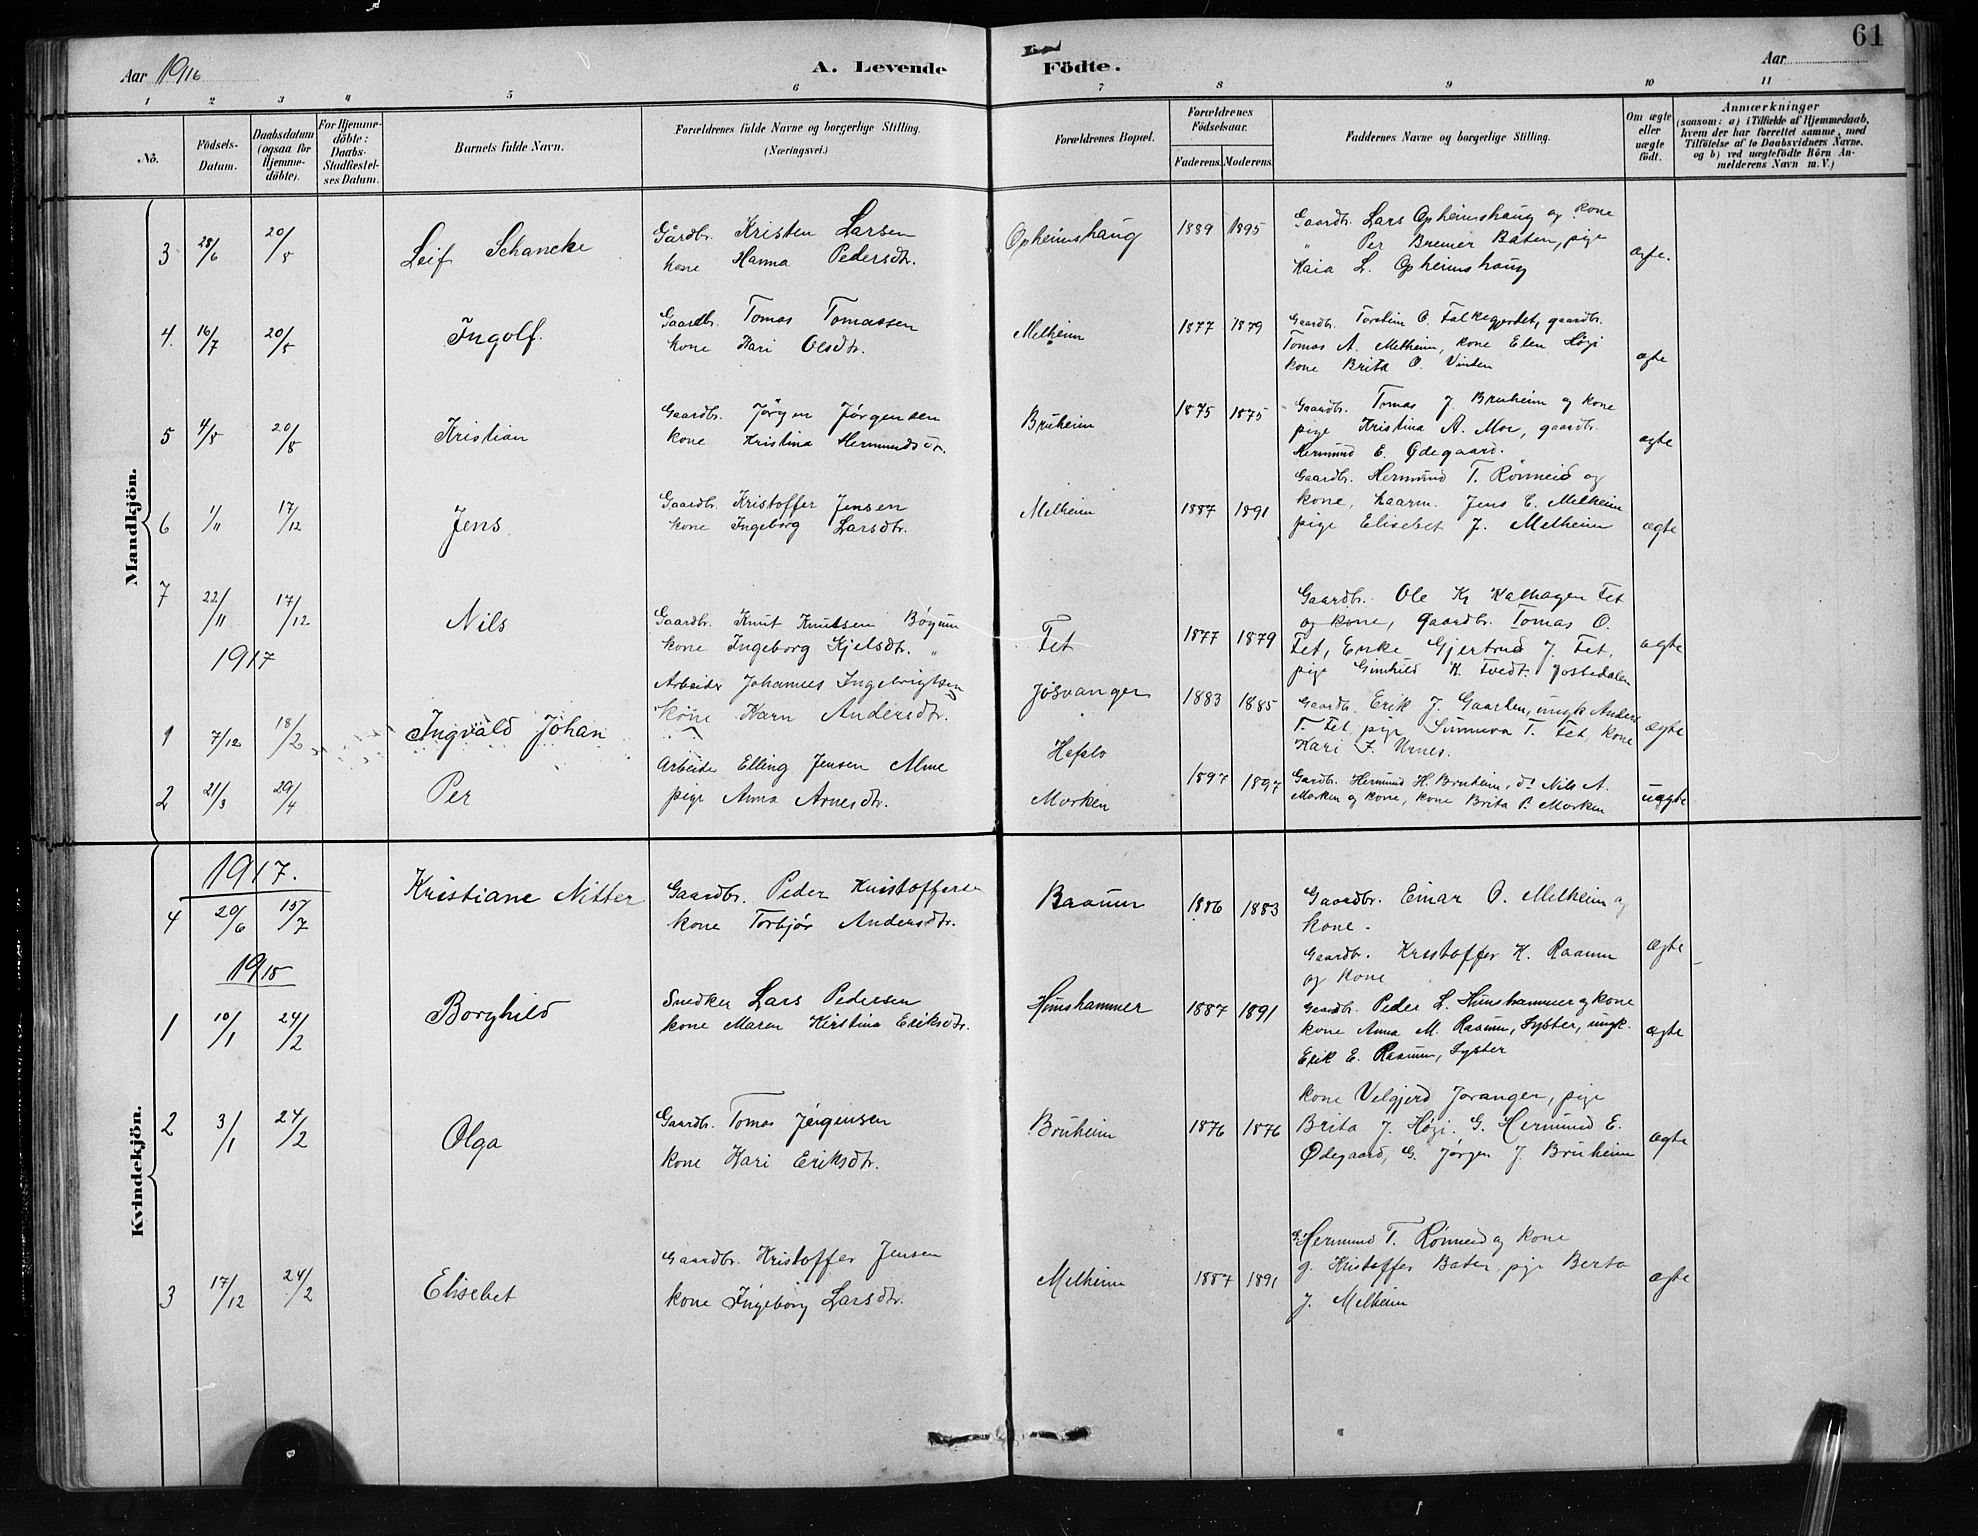 61
Aar 1916
A. Levende
Födte.
Aar
1 2 3 4 5 6 7 8 9 10 11
No.
Födsels-
Datum.
Daabsdatum
(ogsaa for
Hjemme-
döbte).
For Hjemme-
döbte:
Daabs-
Stadfæstel-
ses Datum.
Barnets fulde Navn.
Forældrenes fulde Navne og borgerlige Stilling.
(Næringsvei.)
Forældrenes Bopæl.
Forældrenes
Födselsaar.
Faderens. Moderens.
Faddernes Navne og borgerlige Stilling.
Om ægte
eller
uægte
født.
Anmærkninger
(saasom: a) i Tilfælde af Hjemmedaab,
hvem der har forrettet samme, med
Tilföielse af to Daabsvidners Navne.
og b) ved uægtefödte Börn An-
melderens Navn m. V.)
Mandkjön.
3 28/6 20/5 Leif Schancke
Gårdbr. Kristen Larsen
kone Hanna Pedersdtr.
Opheimshaug 1889 1895
Gaardb. Lars Opheimshaug og kone
" Per Bremer Baten, pige
Kaia L. Opheimshaug
ægte.
4. 16/7 20/5 Ingolf.
Gaardbr. Tomas Tomassen
kone Kari Olsdtr.
Melheim 1877 1879
Gaardb. Torstein O. Falkegjerdet, gaardbr.
Tomas A. Melheim, kone Elen Høgi
kone Brita O. Vinden
ægte
5 4/5 20/8 Kristian
Gaardbr. Jörgen Jørgensen
kone Kristina Hermundsdtr.
Bruheim 1875 1875
Gaardbr. Tomas J. Bruheim og kone
pige Kristina A. Mor, gaardbr.
Hermund E. Ødegaard.
ægte
6 1/11 17/12 Jens
Gaardb. Kristoffer Jensen
kone Ingeborg Larsdtr.
Melheim 1887 1891
Gaardb. Hermund T. Rønneid og
kone, kaarm. Jens E. Melheim
pige Elisebet J. Melheim
ægte
7 22/11 17/12 Nils
Gaardbr. Knut Knutsen Bøyum
kone Ingeborg Kjelsdtr. "
Fet 1877 1879
Gaardb. Ole K. Kalhagen Fet
og kone, gaardbr. Tomas O.
Fet, Enke Gjertrud J. Fet,
pige Gunhild K. Tvedt. Jostedalen
ægte
1917
1 7/12 18/2 Ingvald Johan
Arbeider Johannes Ingebrigtsen
kone Karn Andersdtr.
Jøsvanger
Hafslo
1883 1885
Gaardb. Erik J. Gaarlen, ungk. Anders
T. Fet, pige Sunneva T. Fet, kone
Kari J. Urnes.
ægte
2 21/3 29/4 Per
Arbeider Elling Jensen Alme
pige Anna Arnesdtr.
Morken 1897 1897
Gardb. Hermund H. Bruheim, do Nils A.
Morken og kone, kone Brita P. Morken
uægte
Kvindekjön.
1917.
4 20/6 15/7 Kristiane Nitter
Gaardbr. Peder Kristoffersen
kone Torbjør Andersdtr.
Raaum 1886 1883
Gaardbr. Einar O. Melheim og
kone.
Gaardbr. Kristoffer K. Raaum
og kone
ægte
1915
1 10/1 24/2 Borghild
Snedker Lars Pedersen
kone Maren Kirstina Eriksdtr.
Hunshammer 1887 1891
Gaardb. Peder L. Hunshammer og kone
kone Anna M. Raaum, Lyster, ungk.
Erik E. Raaum, Lyster
ægte
2 3/1 24/2 Olga
Gaardb. Tomas Jørgensen
kone Kari Eriksdtr.
Bruheim 1876 1876
kone Velgjerd Joranger, pige
Brita J. Høgi. G. Hermund E.
Ødegaard, G. Jørgen J. Bruheim
ægte
3 17/12 24/2 Elisebet
Gaardbr. Kristoffer Jensen
kone Ingeborg Larsdtr.
Melheim 1887 1891
G. Hermund T. Rønneid og kone
g. Kristoffer Baten, pige Berta
J. Melheim
ægte